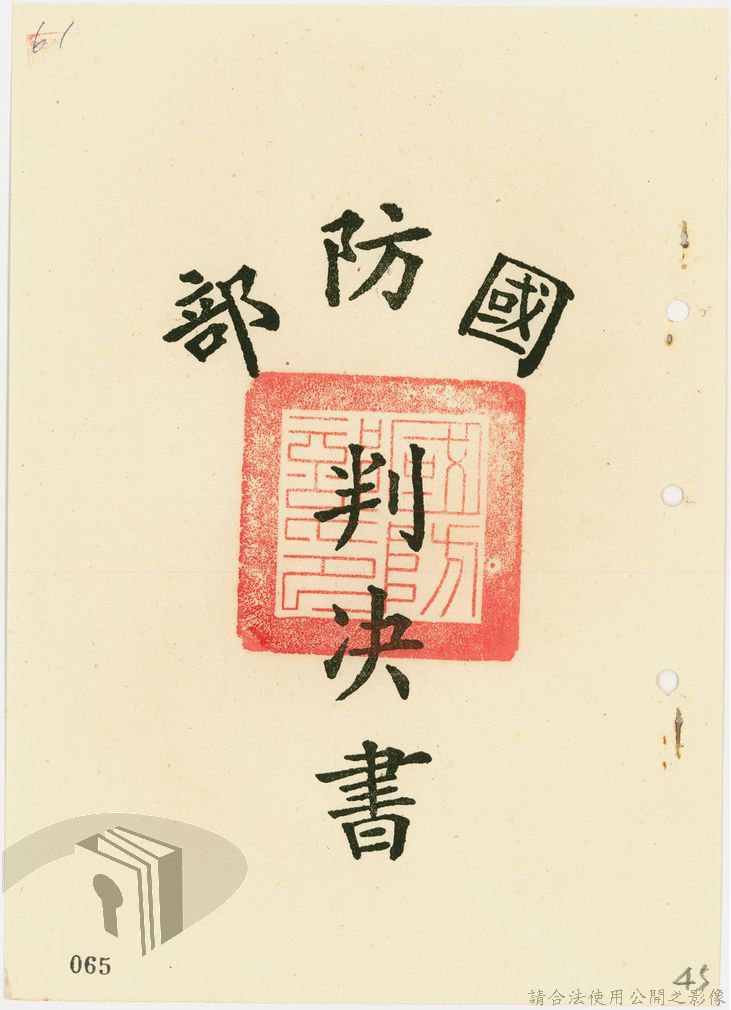 61
國防部
判決書
065
45
請合法使用公開之影像